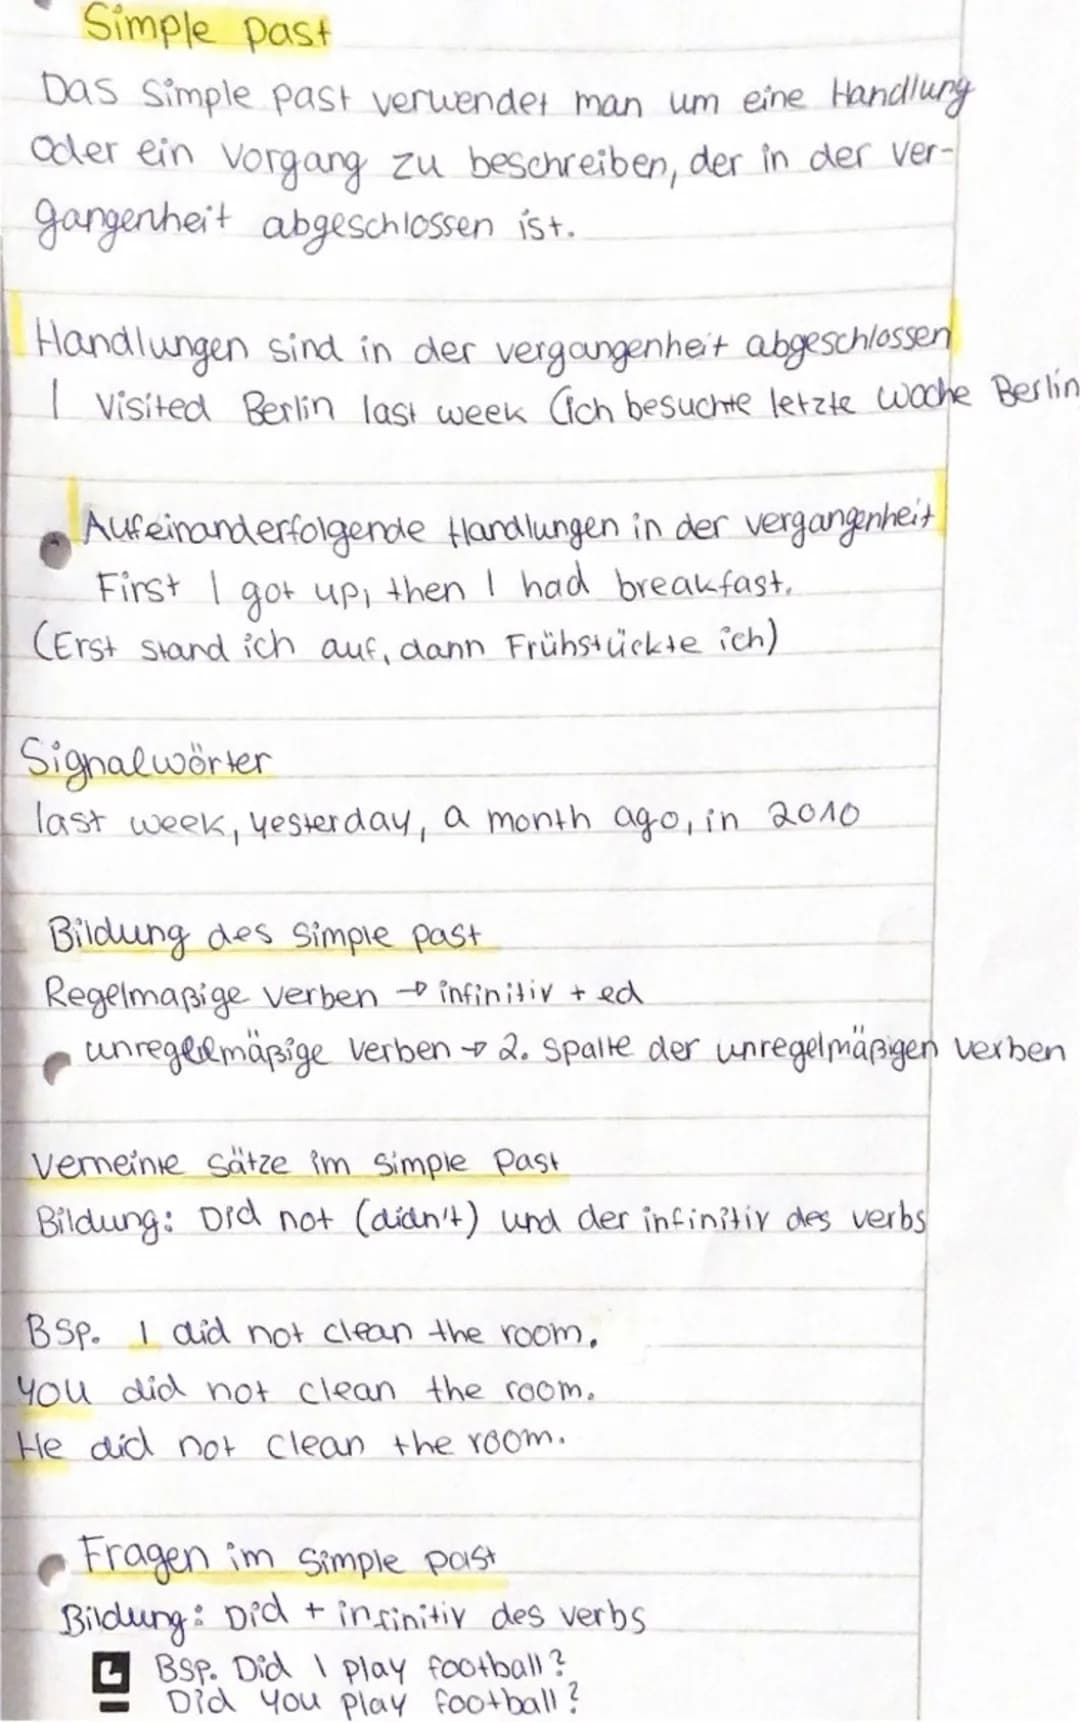 Simple past
Das Simple past verwendet man um eine Handlung
Oder ein Vorgang zu beschreiben, der in der ver-
gangenheit abgeschlossen ist.
Handlungen sind in der vergangenheit abgeschlossen
I Visited Berlin last week (ich besuchte letzte Woche Berlin
Aufeinanderfolgende Handlungen in der vergangenheit
First I got up, then I had breakfast.
(Erst stand ich auf, dann Frühstückte ich)
Signalwörter
last week, yesterday, a month ago, in 2010
Bildung des Simple past
Regelmaßige verben → infinitiv + ed
unregelmäßige Verben → 2. Spalte der unregelmäßigen verben
Verneinte Sätze im Simple Past
Bildung: Did not (didn't) und der infinitiv des verbs
BSP. I did not clean the room.
You did not clean the room.
He did not clean the room.
Fragen im Simple past
Bildung: Did + infinitiv des verbs
BSP. Did I play football?
Did you play football?